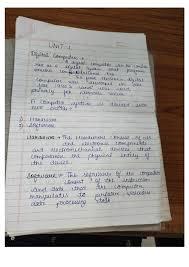 UNIT-1
Digital Computer :-
A digital computer can be
as a digital system that
computational
The first electronic digital
computer was developed in
late 1940's and was used
primarily for numerical
A computer system is divided into
two
1) Hardware
2) Software
Hardware :- The Hardware consist of all
the electronic components
and electromechanical devices that
comprises the physical entity of
the device.
Software :- The software of the computer
consist of the instruction
and data that the computer
manipulates to perform various
data processing task